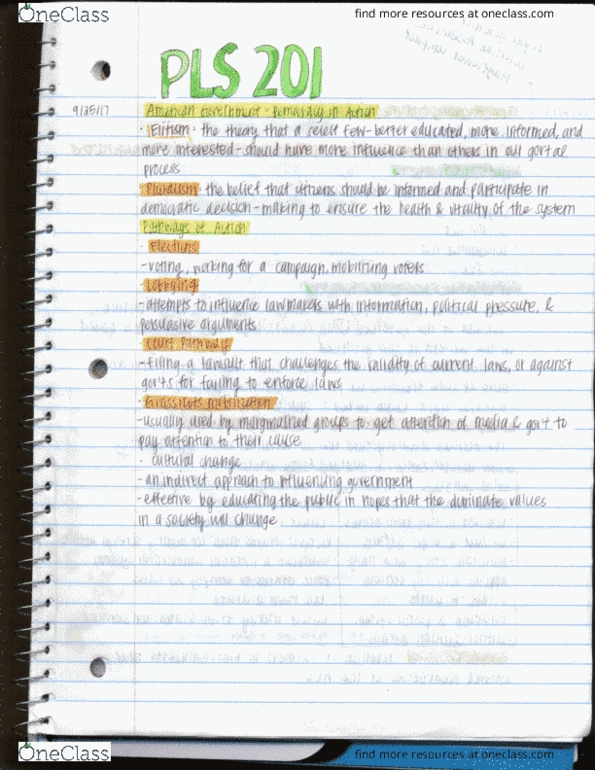 OneClass
find more resources at oneclass.com
PLS 201
9/25/17
American Government - Democracy in Action
· Elitism - the theory that a select few - better educated, more informed, and
more interested - should have more influence than others in our gov't al
process
· Pluralism - the belief that citizens should be informed and participate in
democratic decision-making to ensure the health & vitality of the system
Pathways of Action
· Elections
- voting, working for a campaign, mobilizing voters
· Lobbying
- attempts to influence lawmakers with information, political pressure, &
persuasive arguments
· Court Pathway
- filing a lawsuit that challenges the validity of current laws, or against
gov'ts for failing to enforce laws
· Grassroots mobilization
- usually used by marginalized groups to get attention of media & gov't to
pay attention to their cause
· cultural change
- an indirect approach to influencing government
- effective by educating the public in hopes that the dominate values
in a society will change
OneClass
find more resources at oneclass.com